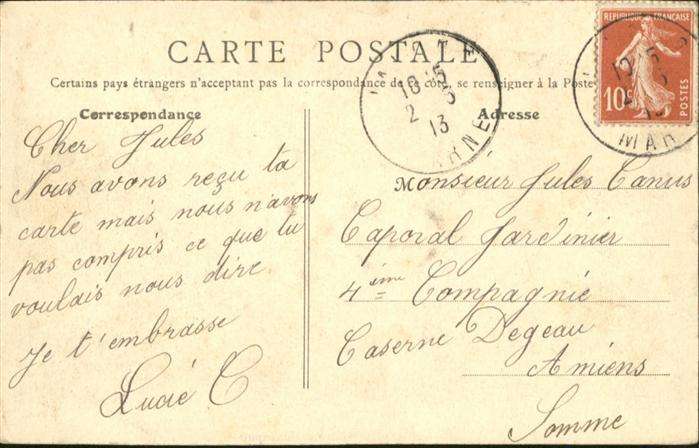 CARTE POSTALE
Certains pays étrangers n'acceptant pas la correspondance de ce côté, se renseigner à la Poste
Correspondance
Cher Jules
Nous avons reçu ta
carte mais nous n'avons
pas compris ce que tu
voulais nous dire
Je t'embrasse
Lucie C
Adresse
Monsieur Jules Canus
Caporal Jardinier
4ème Compagnie
Caserne Degeau
Amiens
Somme
REPUBLIQUE FRANÇAISE
10c
POSTES
10
2 5
13
MAR